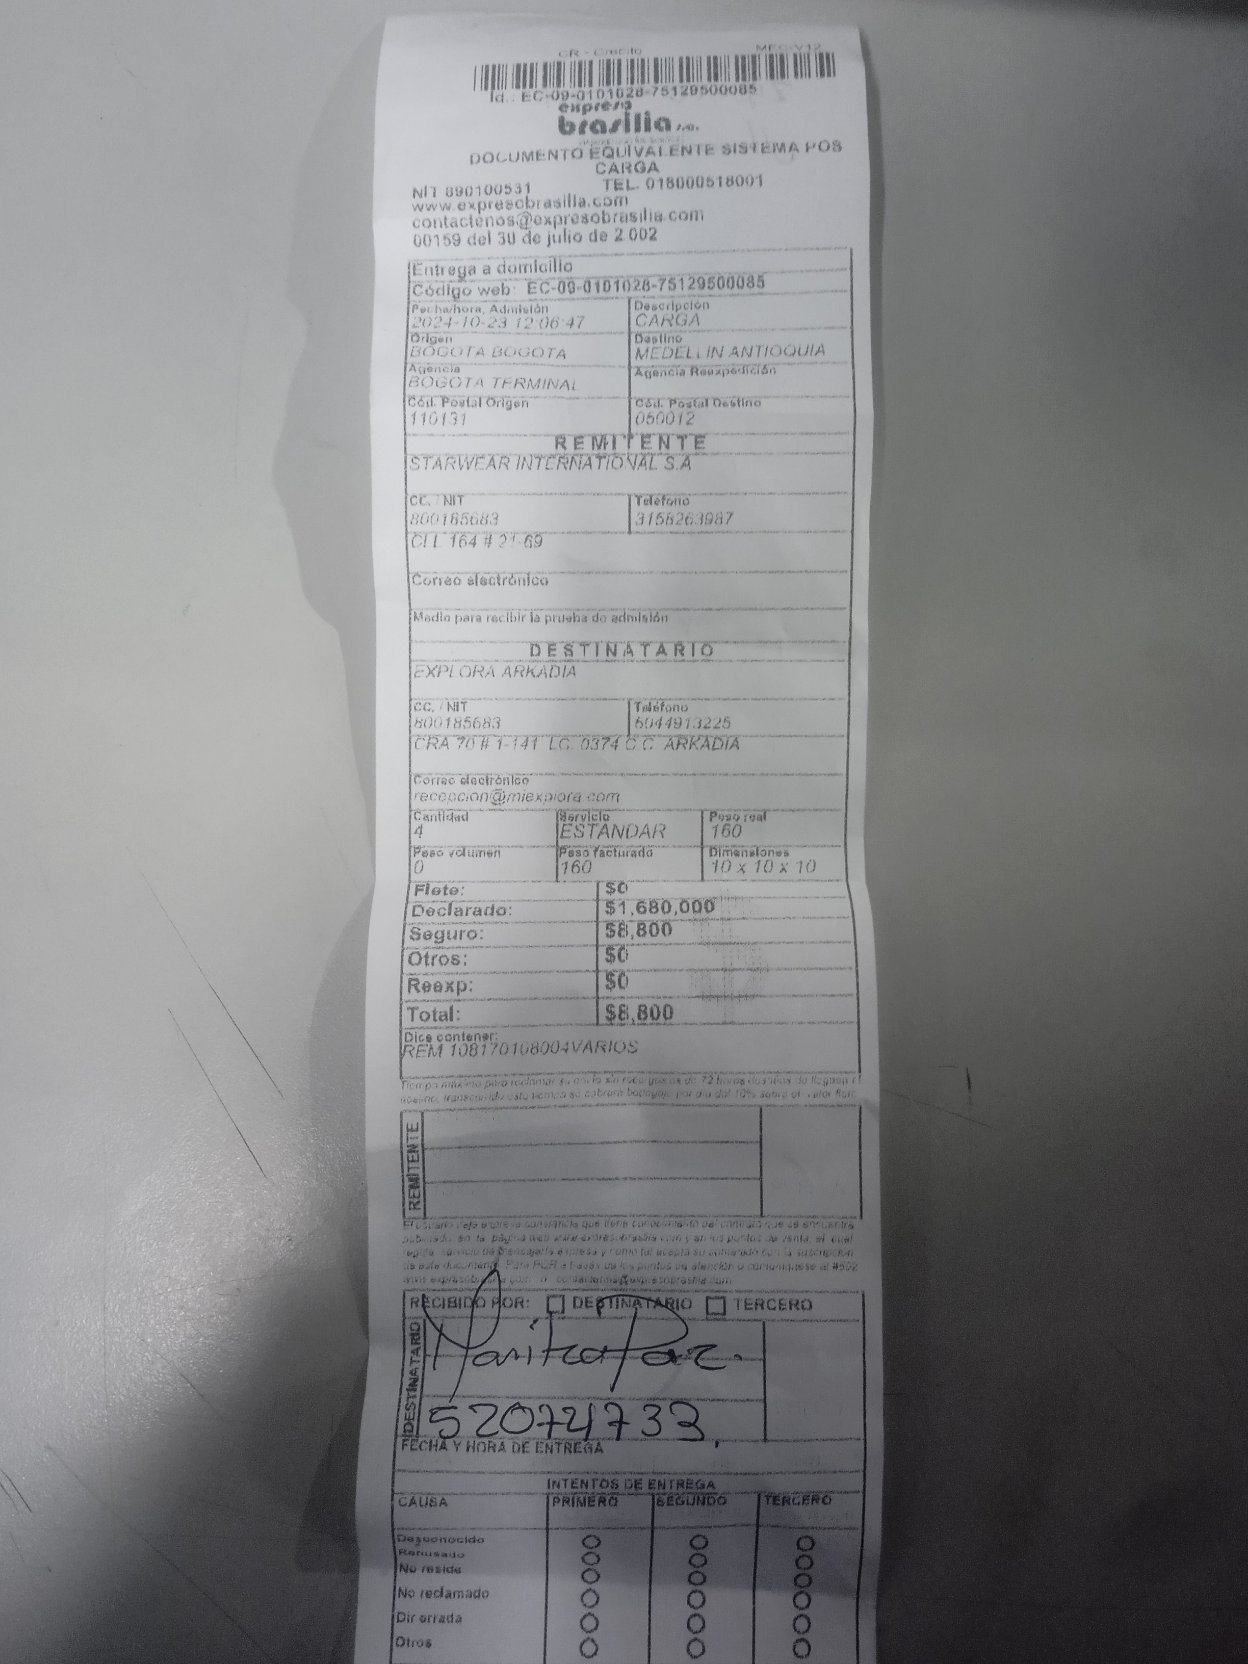 CR - Crédito MEC-V12
Id.: EC-09-0101028-75129500085
expreso
brasilia s.a.
DOCUMENTO EQUIVALENTE SISTEMA POS
CARGA
NIT 890100531 TEL. 018000518001
www.expresobrasilia.com
contactenos@expresobrasilia.com
00159 del 30 de julio de 2.002
Entrega a domicilio
Código web: EC-09-0101028-75129500085
Fecha/hora, Admisión Descripción
2024-10-23 12:06:47 CARGA
Origen Destino
BOGOTA BOGOTA MEDELLIN ANTIOQUIA
Agencia Agencia Reexpedición
BOGOTA TERMINAL
Cód. Postal Origen Cód. Postal Destino
110131 050012
REMITENTE
STARWEAR INTERNATIONAL S.A
CC. / NIT Teléfono
800185683 3158263987
CLL 164 # 21-69
Correo electrónico
Medio para recibir la prueba de admisión
DESTINATARIO
EXPLORA ARKADIA
CC. / NIT Teléfono
800185683 6044913225
CRA 70 # 1-141 LC. 0374 C.C. ARKADIA
Correo electrónico
recepcion@miexplora.com
Cantidad Servicio Peso real
4 ESTANDAR 160
Peso volumen Peso facturado Dimensiones
0 160 10 x 10 x 10
Flete: $0
Declarado: $1,680,000
Seguro: $8,800
Otros: $0
Reexp: $0
Total: $8,800
Dice contener:
REM 108170108004VARIOS
Tiempo máximo para reclamar su envío sin recargos es de 72 horas después de llegada al
destino, transcurrido este tiempo se cobrara bodegaje por día del 10% sobre el valor flete
REMITENTE
El usuario deja expresa constancia que tiene conocimiento del contrato que se encuentra
publicado en la página web www.expresobrasilia.com y en los puntos de venta, el cual
regula servicio de mensajería expresa y como tal acepta su contenido con la suscripción
de este documento. Para PQR a través de los puntos de atención o comuníquese al #502
www.expresobrasilia.com o contactenos@expresobrasilia.com
RECIBIDO POR: DESTINATARIO TERCERO
DESTINATARIO
Maritza Paz.
52074733.
FECHA Y HORA DE ENTREGA
INTENTOS DE ENTREGA
CAUSA PRIMERO SEGUNDO TERCERO
Desconocido
Rehusado
No reside
No reclamado
Dir errada
Otros